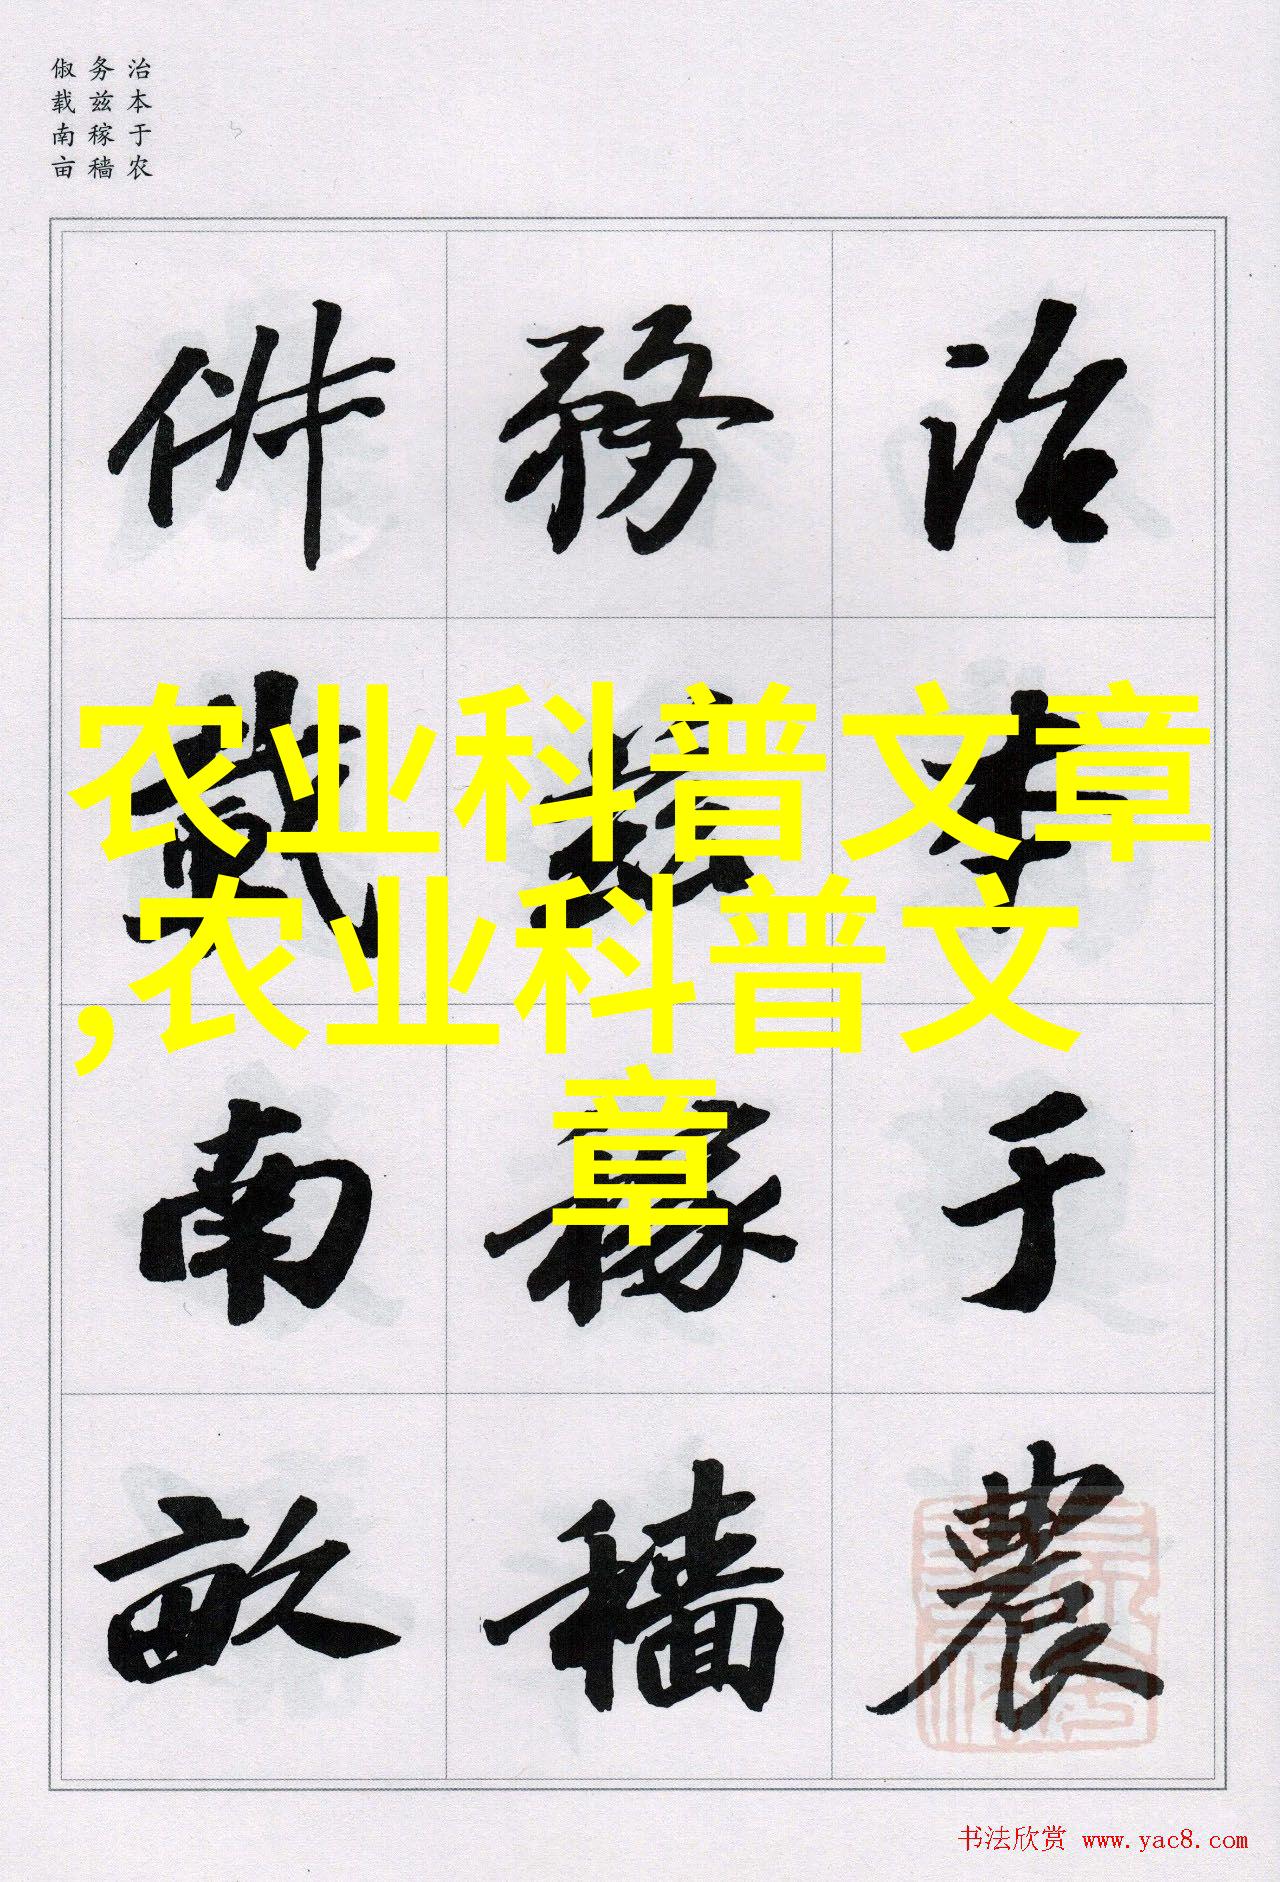 治本于农
务兹稼穑
俶载南亩
治本于農
務茲稼穡
俶載南畝
农业科普文章
,农业科普文
章
书法欣赏 www.yac8.com